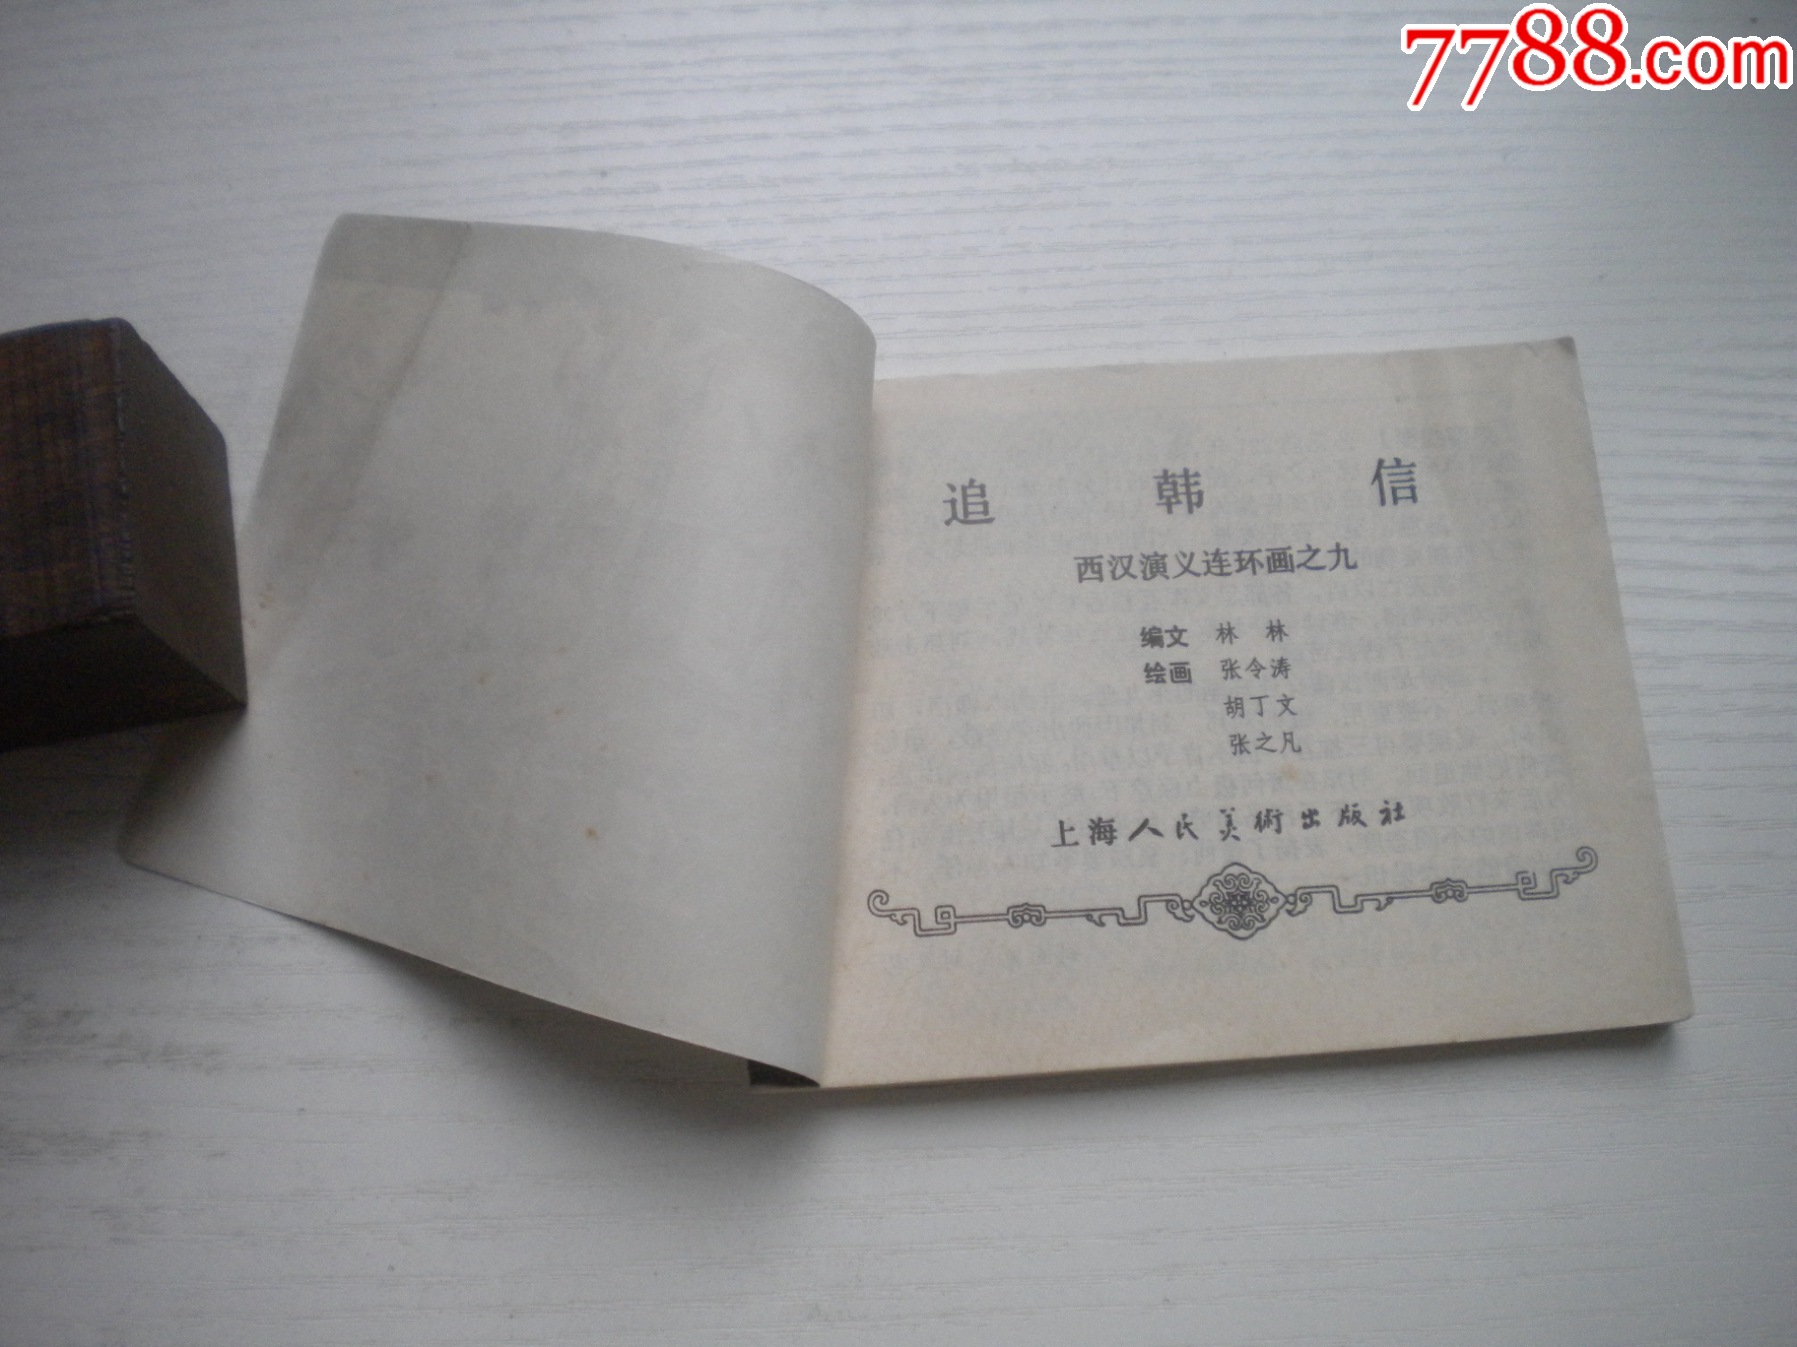 7788.com
追 韩 信
西汉演义连环画之九
编文 林 林
绘画 张令涛
胡丁文
张之凡
上海人民美術出版社